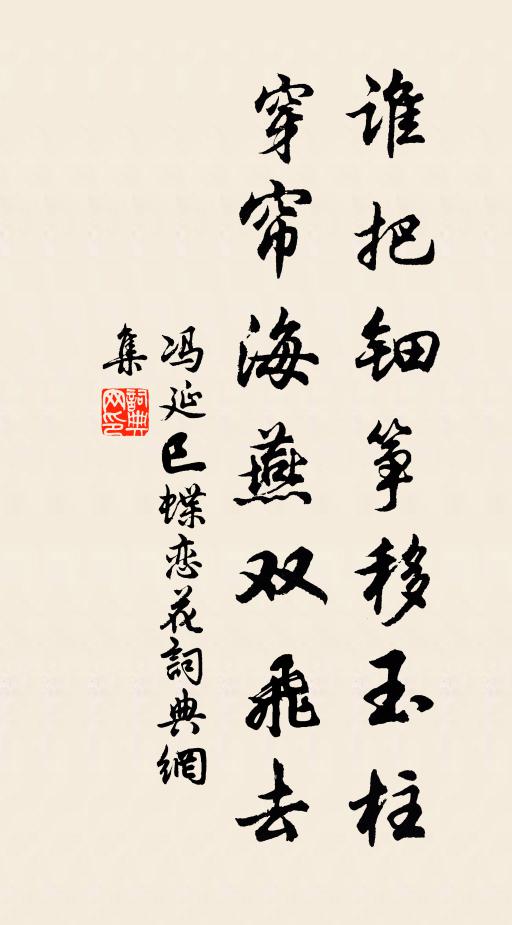 谁把钿筝移玉柱
穿帘海燕双飞去
冯延巳蝶恋花詞典網
集
詞典
网印